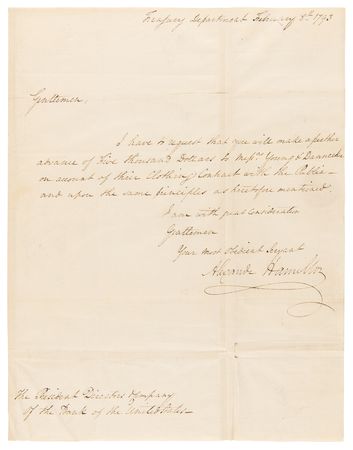 Treasury Department February 8th 1793
Gentlemen,
I have to request that you will make a further
advance of Five thousand Dollars to Messrs Young &
on account of their Clothing Contract with the Public
and upon the same principles as heretofore mentioned.
I am with great consideration
Gentlemen
Your most obedient Servant
Alexander Hamilton
The President Directors & Company
of the Bank of the United States